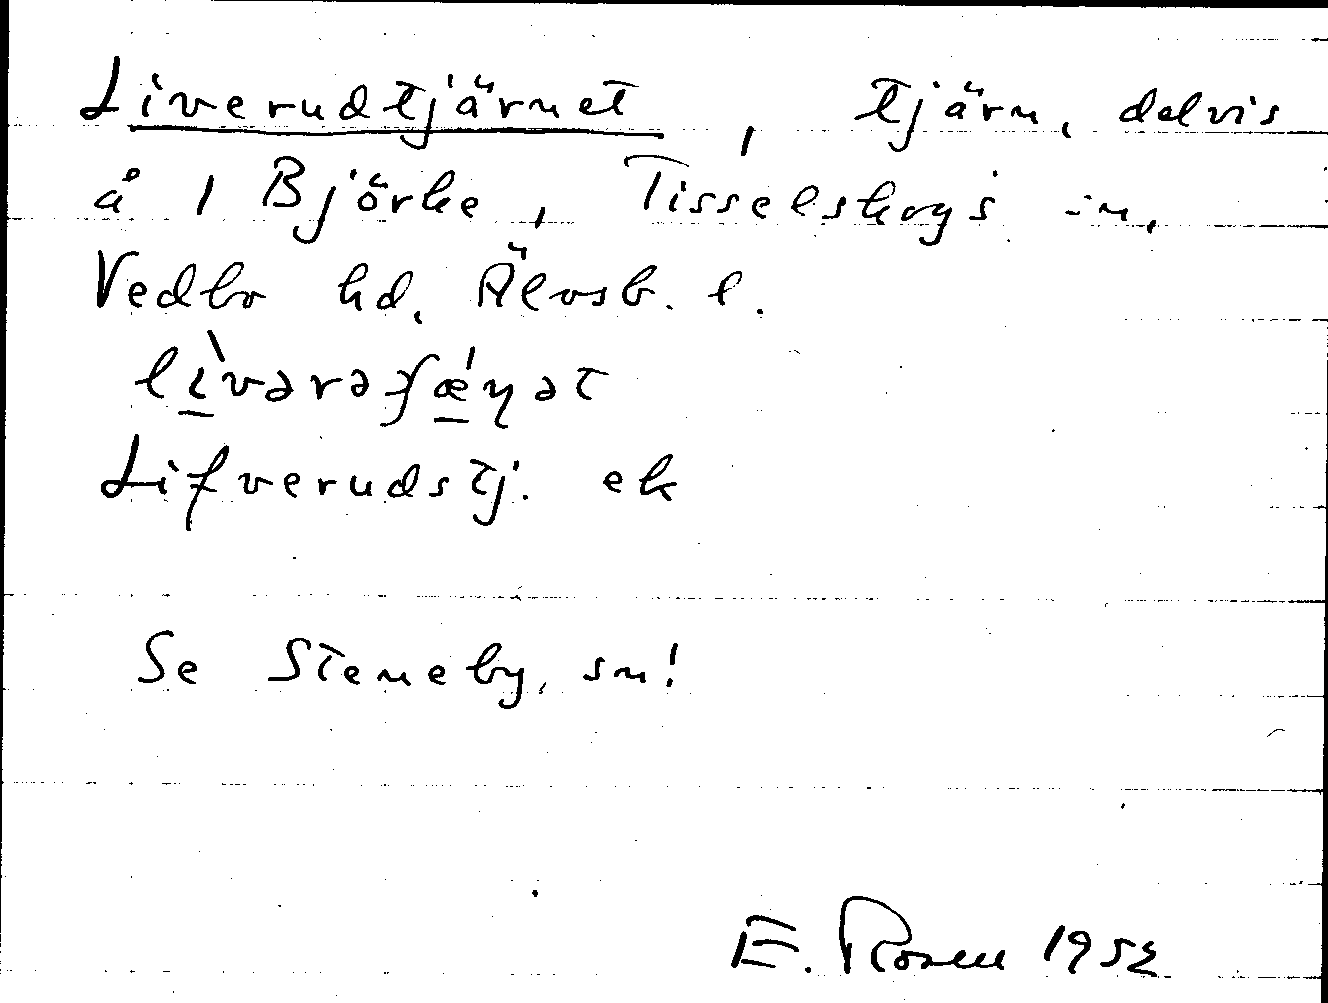 Liverudtjärnet, tjärn, delvis
å 1 Björke, Tisselskogs sn,
Vedbo hd, Älvsb. l.
lìvərəʃǽɳət
Lifverudstj. ek
Se Steneby, sn!
E. Rosen 1952